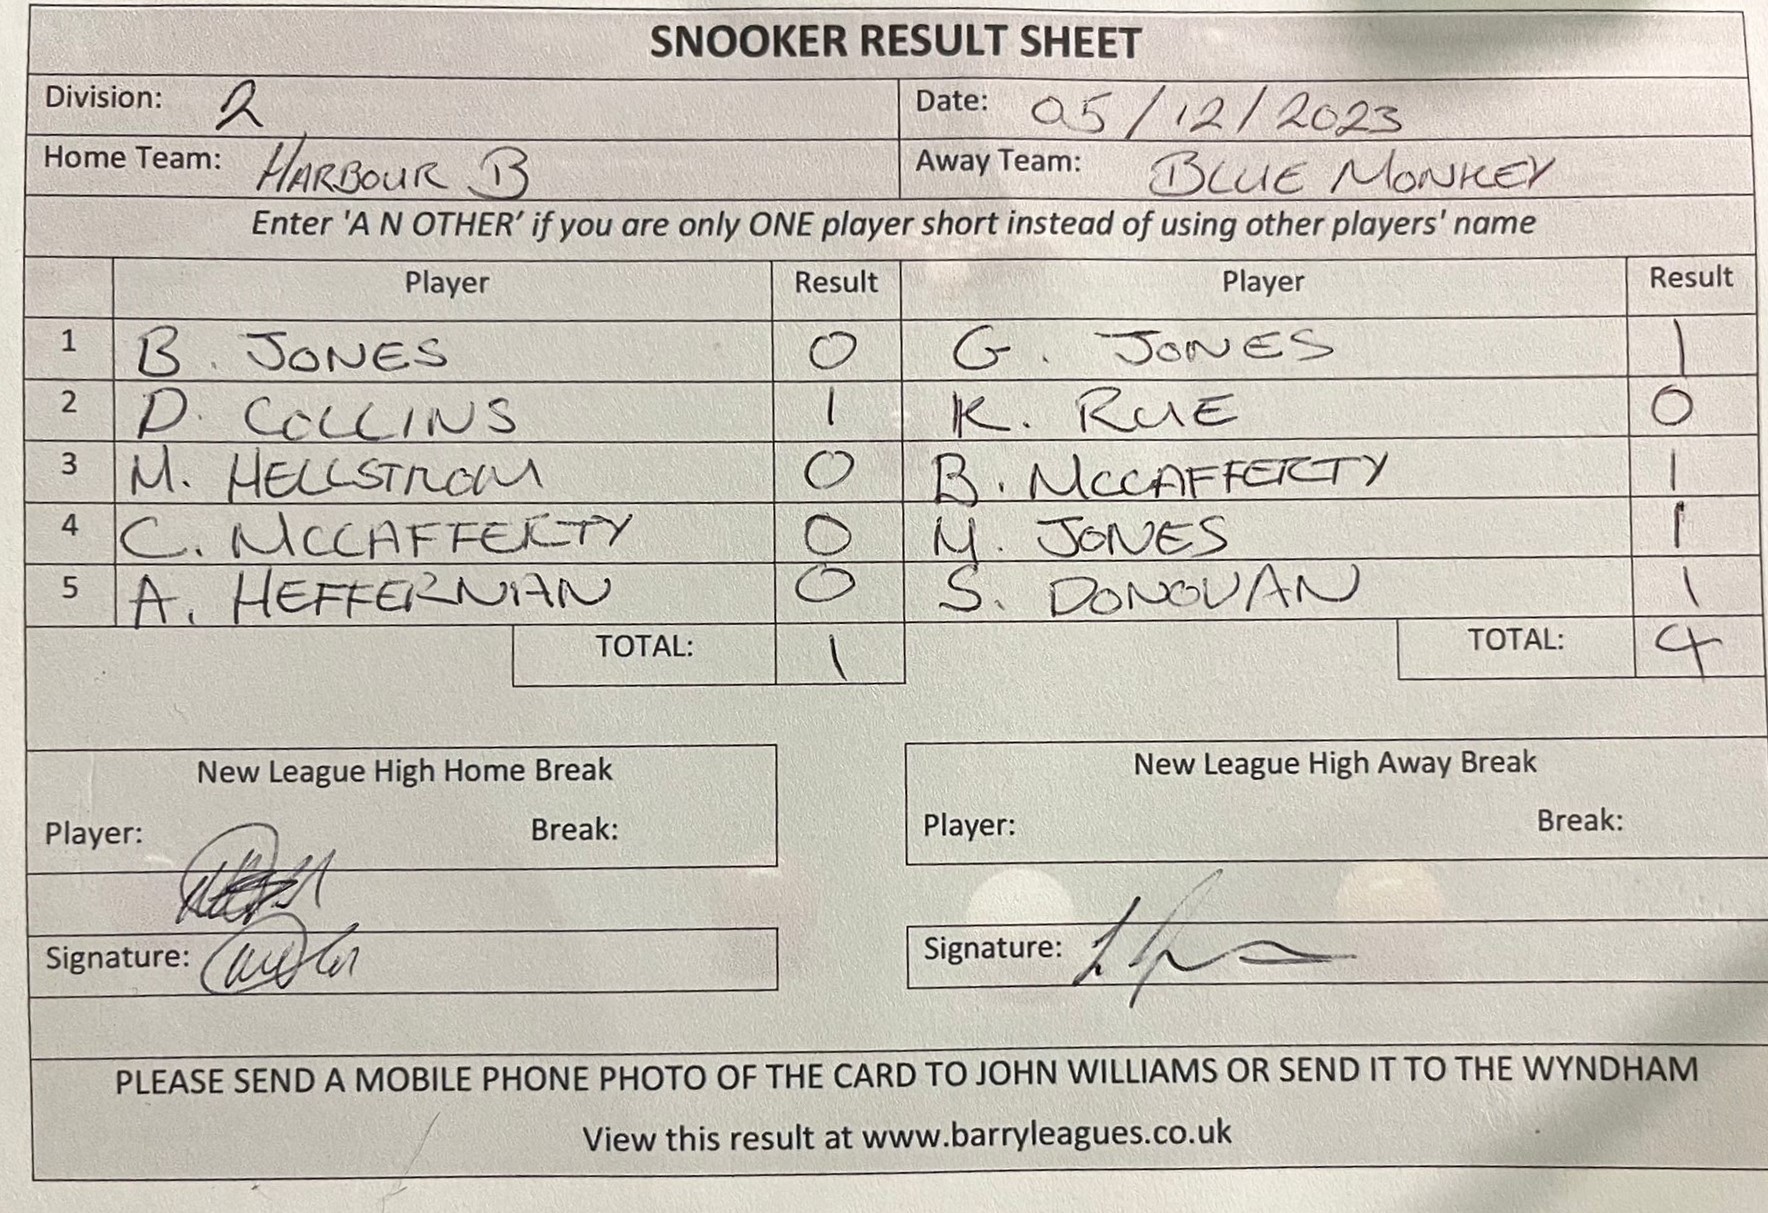 SNOOKER RESULT SHEET
Division: 2 Date: 05/12/2023
Home Team: HARBOUR B Away Team: BLUE MONKEY
Enter 'A N OTHER' if you are only ONE player short instead of using other players' name
Player Result Player Result
1 B. JONES 0 G. JONES 1
2 D. COLLINS 1 K. RUE 0
3 M. HELLSTROM 0 B. MCCAFFERTY 1
4 C. MCCAFFERTY 0 M. JONES 1
5 A. HEFFERNAN 0 S. DONOVAN 1
TOTAL: 1 TOTAL: 4
New League High Home Break New League High Away Break
Player: Break: Player: Break:
Signature: Signature:
PLEASE SEND A MOBILE PHONE PHOTO OF THE CARD TO JOHN WILLIAMS OR SEND IT TO THE WYNDHAM
View this result at www.barryleagues.co.uk